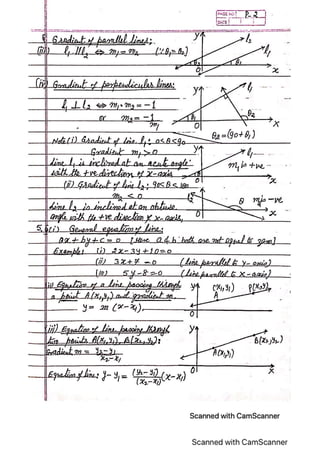 PAGE NO: P-2
DATE: / /
Gradient of parallel lines:
(iii) l₁ ∥ l₂ ⇔ m₁ = m₂ (∵ θ₁ = θ₂)
Y l₂ l₁ θ₁ θ₂ O X
(iv) Gradient of perpendicular lines:
l₁ ⊥ l₂ ⇔ m₁·m₂ = -1
or m₂ = -1/m₁
Y l₁ l₂ θ₁ θ₂ O X
θ₂ = (90+θ₁)
Note: (i) Gradient of line l₁: 0<θ<90
Gradient m₁ > 0
line l₁ is inclined at an acute angle
with the +ve direction of x-axis
Y l₁ θ O X
m₁ is +ve
(ii) Gradient of line l₂: 90<θ<180
m₂ < 0
line l₂ is inclined at an obtuse
angle with the +ve direction of x-axis.
Y θ m₂ is -ve
O l₂ X
5. (i) General equation of line:
ax + by + c = 0 [Here a & b both are not equal to zero]
Example: (i) 2x - 3y + 10 = 0
(ii) 3x + 7 = 0 (line parallel to Y-axis)
(iii) 5y - 8 = 0 (line parallel to X-axis)
(ii) Equation of a line passing through
a point A(x₁,y₁) and gradient m.
y = m(x - x₁),
Y (x₁,y₁) P(x,y) A O X
(iii) Equation of line passing through
two points A(x₁,y₁), B(x₂,y₂):
Gradient, m = y₂-y₁/x₂-x₁
Y B(x₂,y₂) A(x₁,y₁) O X
Equation of line: y - y₁ = (y₂-y₁)/(x₂-x₁) (x - x₁)
Scanned with CamScanner
Scanned with CamScanner